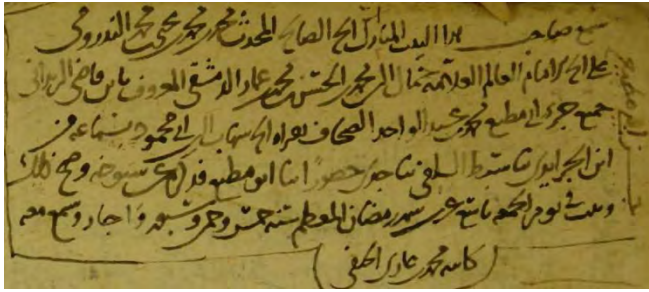 سمع صاحب هذا الثبت المبارك الحاج الصالح المحدث محمد بن محمد بن يحيى بن محمد الندرومي
على الإمام العالم العلامة جمال الدين محمد بن الحسن بن محمد بن عماد الدمشقي المعروف بابن قاضي الزبداني
جميع جزء أبي مطيع محمد بن عبد الواحد الصحاف بقراءة شهاب الدين أبي محمود بسماعه من
ابن الجرايدي بنا سبط السلفي بنا جدي حضورا ابنا ابو مطيع فذكره عن شيوخه وصح ذلك
وثبت في يوم الجمعة تاسع عشر شهر رمضان المعظم سنة خمس وخمسين وسبعمائة وأجاز وسمع معه
كاتبه محمد بن الحنفي